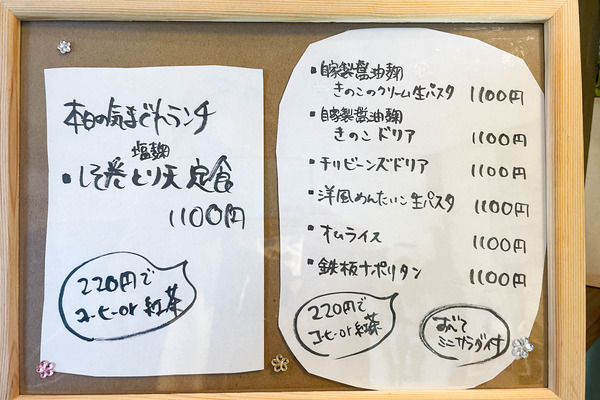 本日の気まぐれランチ
塩麹
・しそ巻とり天定食
1100円
220円で
コーヒーor紅茶
・自家製醤油麹
きのこのクリーム生パスタ 1100円
・自家製醤油麹
きのこドリア 1100円
・チリビーンズドリア 1100円
・洋風めんたいこ生パスタ 1100円
・オムライス 1100円
・鉄板ナポリタン 1100円
220円で
コーヒーor紅茶
すべて
ミニサラダ付